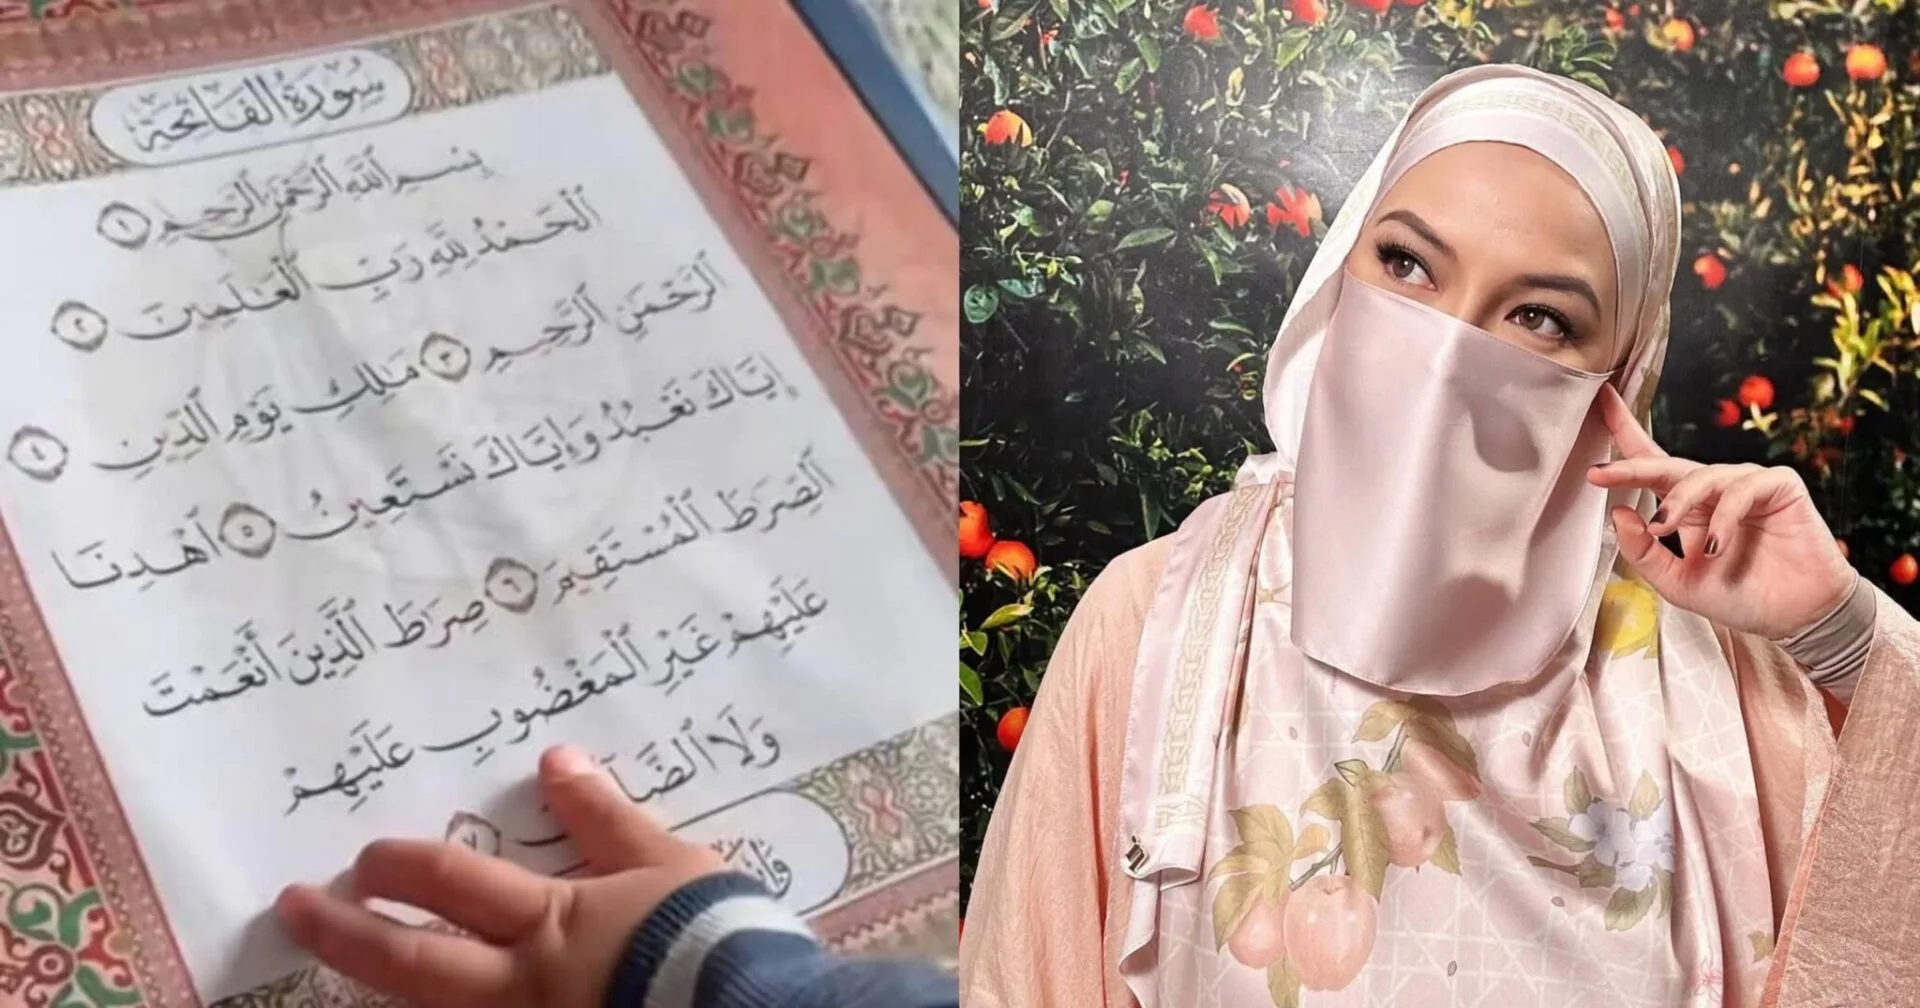 سُورَةُ الفَاتِحَةِ
بِسْمِ ٱللَّهِ ٱلرَّحْمَٰنِ ٱلرَّحِيمِ ١
ٱلْحَمْدُ لِلَّهِ رَبِّ ٱلْعَٰلَمِينَ ٢
ٱلرَّحْمَٰنِ ٱلرَّحِيمِ ٣ مَٰلِكِ يَوْمِ ٱلدِّينِ ٤
إِيَّاكَ نَعْبُدُ وَإِيَّاكَ نَسْتَعِينُ ٥ ٱهْدِنَا
ٱلصِّرَٰطَ ٱلْمُسْتَقِيمَ ٦ صِرَٰطَ ٱلَّذِينَ أَنْعَمْتَ
عَلَيْهِمْ غَيْرِ ٱلْمَغْضُوبِ عَلَيْهِمْ
وَلَا ٧